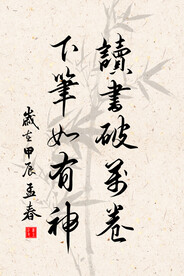 讀書破萬卷
下筆如有神
歲在甲辰孟春